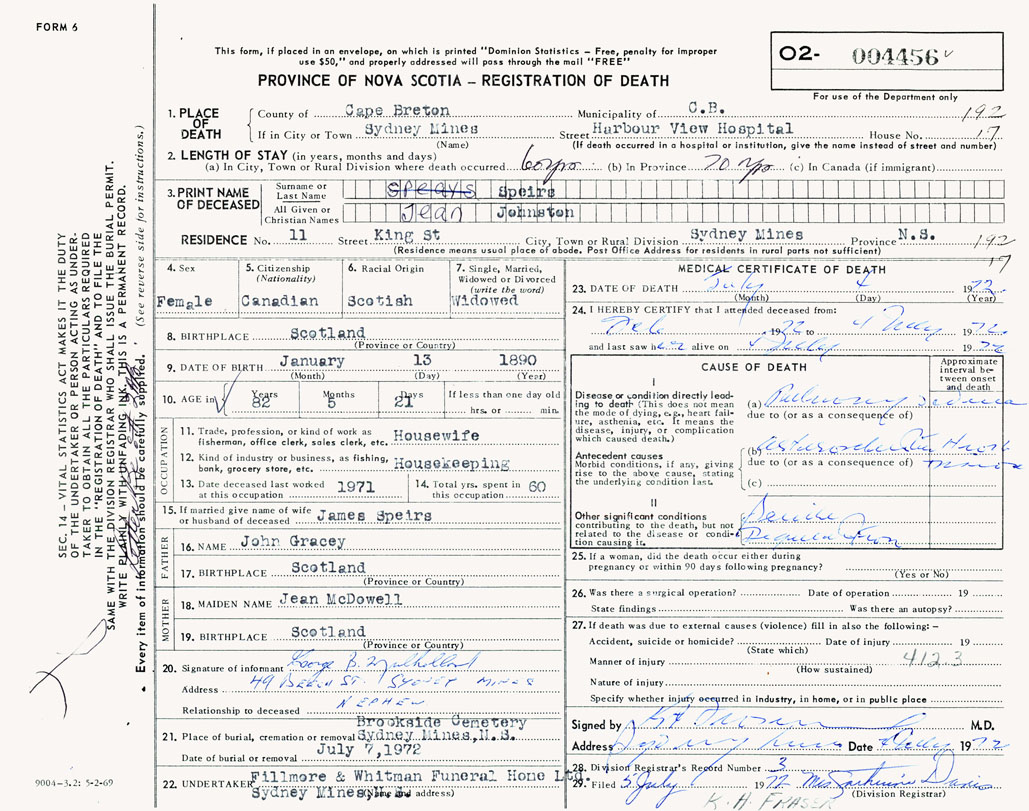 FORM 6
This form, if placed in an envelope, on which is printed "Dominion Statistics – Free, penalty for improper
use $50," and properly addressed will pass through the mail "FREE"
O2- 004456
For use of the Department only
PROVINCE OF NOVA SCOTIA – REGISTRATION OF DEATH
1. PLACE OF DEATH
County of Cape Breton Municipality of C.B. 192
If in City or Town Sydney Mines Street Harbour View Hospital House No. 17
(Name) (If death occurred in a hospital or institution, give the name instead of street and number)
2. LENGTH OF STAY (in years, months and days)
(a) In City, Town or Rural Division where death occurred 60 yrs (b) In Province 70 yrs (c) In Canada (if immigrant)
3. PRINT NAME OF DECEASED
Surname or Last Name Spears Speirs
All Given or Christian Names Jean Johnston
RESIDENCE No. 11 Street King St City, Town or Rural Division Sydney Mines Province N.S. 192
(Residence means usual place of abode. Post Office Address for residents in rural parts not sufficient) 17
4. Sex
Female
5. Citizenship (Nationality)
Canadian
6. Racial Origin
Scotish
7. Single, Married, Widowed or Divorced (write the word)
Widowed
8. BIRTHPLACE Scotland
(Province or Country)
9. DATE OF BIRTH January 13 1890
(Month) (Day) (Year)
10. AGE in Years Months Days If less than one day old
82 5 21 hrs. or min.
OCCUPATION
11. Trade, profession, or kind of work as
fisherman, office clerk, sales clerk, etc. Housewife
12. Kind of industry or business, as fishing,
bank, grocery store, etc. Housekeeping
13. Date deceased last worked at this occupation 1971
14. Total yrs. spent in this occupation 60
15. If married give name of wife
or husband of deceased James Speirs
FATHER
16. NAME John Gracey
17. BIRTHPLACE Scotland
(Province or Country)
MOTHER
18. MAIDEN NAME Jean McDowell
19. BIRTHPLACE Scotland
(Province or Country)
20. Signature of informant George B. Mulholland
Address 49 Beech St. Sydney Mines
Relationship to deceased Nephew
21. Place of burial, cremation or removal Brookside Cemetery
Sydney Mines, N.S.
Date of burial or removal July 7,1972
22. UNDERTAKER Fillmore & Whitman Funeral Home Ltd.
Sydney Mines
(Name and address)
MEDICAL CERTIFICATE OF DEATH
23. DATE OF DEATH July 4 1972
(Month) (Day) (Year)
24. I HEREBY CERTIFY that I attended deceased from:
Feb 1972 to 4 July 1972
and last saw her alive on 4 July 1972
CAUSE OF DEATH
Approximate interval between onset and death
I
Disease or condition directly lead-
ing to death (This does not mean
the mode of dying, e.g., heart fail-
ure, asthenia, etc. It means the
disease, injury, or complication
which caused death.)
(a) Pulmonary Edema
due to (or as a consequence of)
Antecedent causes
Morbid conditions, if any, giving
rise to the above cause, stating
the underlying condition last.
(b)
due to (or as a consequence of)
(c)
II
Other significant conditions
contributing to the death, but not
related to the disease or condi-
tion causing it.
Senile
25. If a woman, did the death occur either during
pregnancy or within 90 days following pregnancy?
(Yes or No)
26. Was there a surgical operation? Date of operation 19
State findings Was there an autopsy?
27. If death was due to external causes (violence) fill in also the following: –
Accident, suicide or homicide? Date of injury 19
(State which)
Manner of injury 412.3
(How sustained)
Nature of injury
Specify whether injury occurred in industry, in home, or in public place
Signed by M.D.
Address Sydney Mines Date 4 July 1972
28. Division Registrar's Record Number 3
29. Filed 5 July 1972 Mrs Davis
(Division Registrar)
K. H. FRASER
SEC. 14 – VITAL STATISTICS ACT MAKES IT THE DUTY
OF THE UNDERTAKER OR PERSON ACTING AS UNDER-
TAKER TO OBTAIN ALL THE PARTICULARS REQUIRED
IN THE "REGISTRATION OF DEATH" AND TO FILE THE
SAME WITH THE DIVISION REGISTRAR WHO SHALL ISSUE THE BURIAL PERMIT.
WRITE PLAINLY WITH UNFADING INK, THIS IS A PERMANENT RECORD.
Every item of information should be carefully supplied. (See reverse side for instructions.)
9004-3.2: 5-2-69